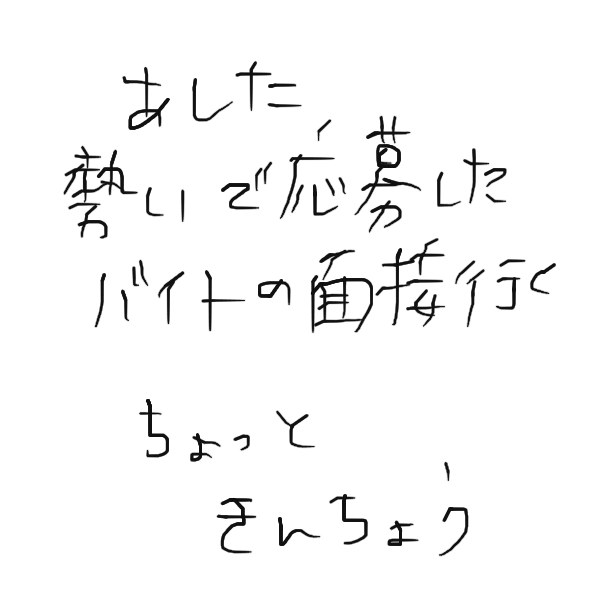 あした
勢いで応募した
バイトの面接行く
ちょっと
きんちょう